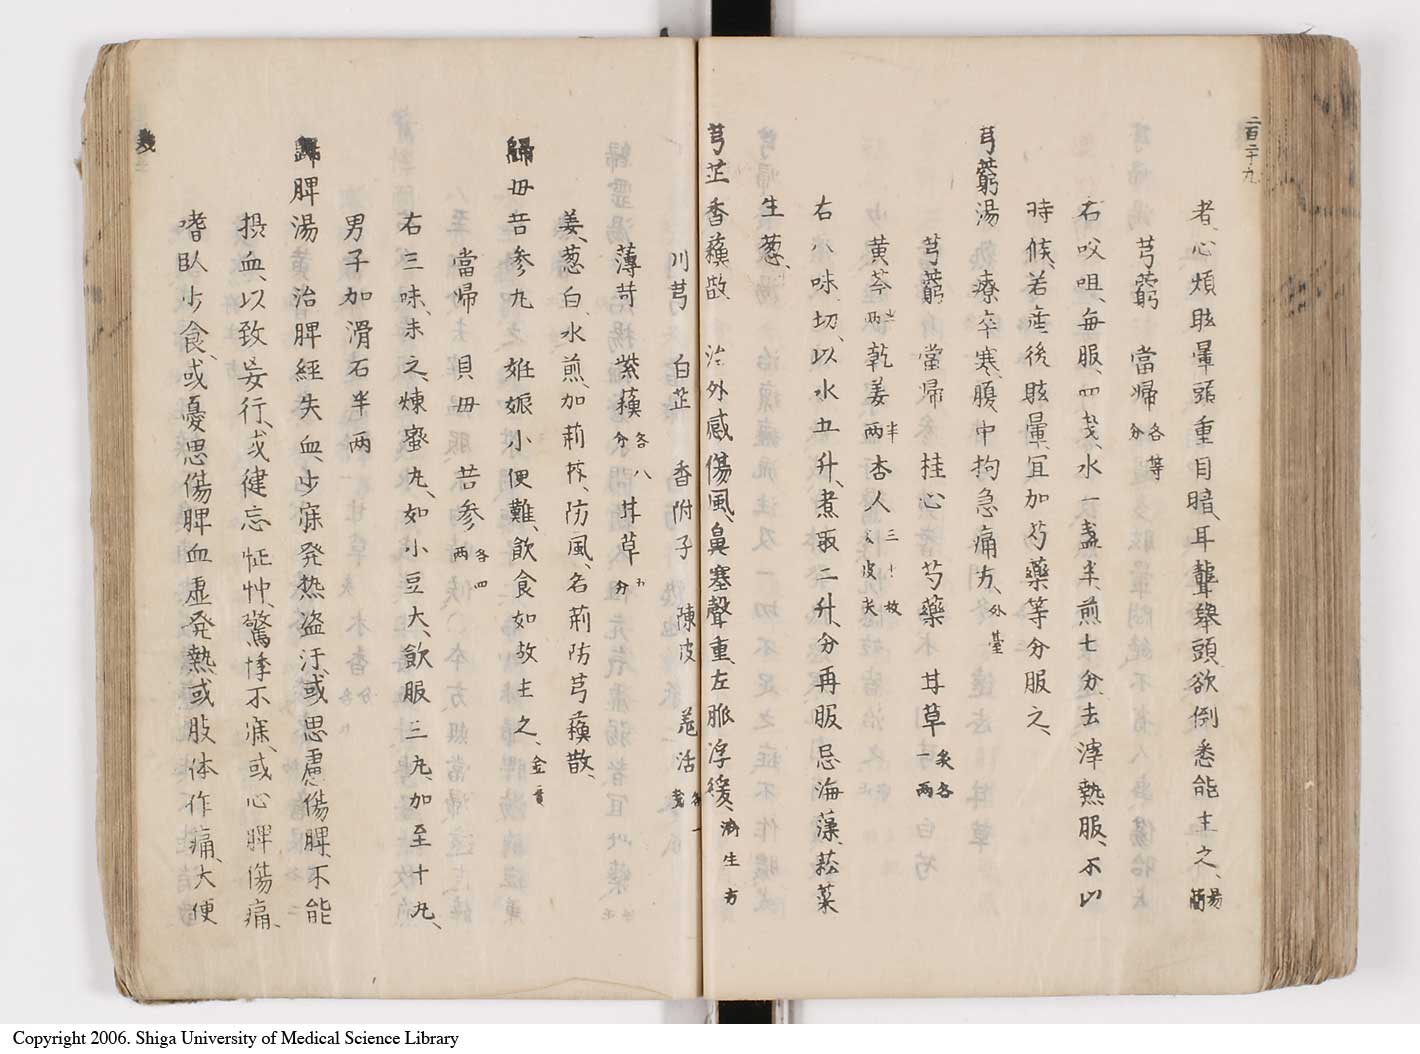 二百二十九
者、心煩眩暈、頭重目暗、耳聾、舉頭欲倒、悉能主之、易簡
芎藭 當帰各等分
右㕮咀、每服四戔、水一盞半、煎七分、去滓熱服、不以
時候、若產後眩暈、宜加芍藥等分服之、
芎藭湯 療卒寒、腹中拘急痛方、外臺
芎藭 當帰 桂心 芍藥 甘草炙各一兩
黄芩 乾姜半兩 杏人三十枚
右八味切、以水五升、煮取二升、分再服、忌海藻、菘菜
生葱、
芎芷香蘓散 治外感傷風、鼻塞聲重、左脈浮緩、濟生方
川芎 白芷 香附子 陳皮 羌活各一戔
薄苛 紫蘓各八分 甘草五分
姜、葱白、水煎、加荊芥、防風、名荊防芎蘓散、
歸母苦參丸 妊娠小便難、飲食如故主之、金匱
當帰 貝母 苦參各四兩
右三味、末之、煉蜜丸、如小豆大、飲服三丸、加至十丸、
男子加滑石半兩
歸脾湯 治脾經失血、少寐発热盗汗、或思慮傷脾、不能
摂血、以致妄行、或健忘怔忡、驚悸不寐、或心脾傷痛、
嗜臥少食、或憂思傷脾、血虚発熱、或肢体作痛、大便
Copyright 2006. Shiga University of Medical Science Library